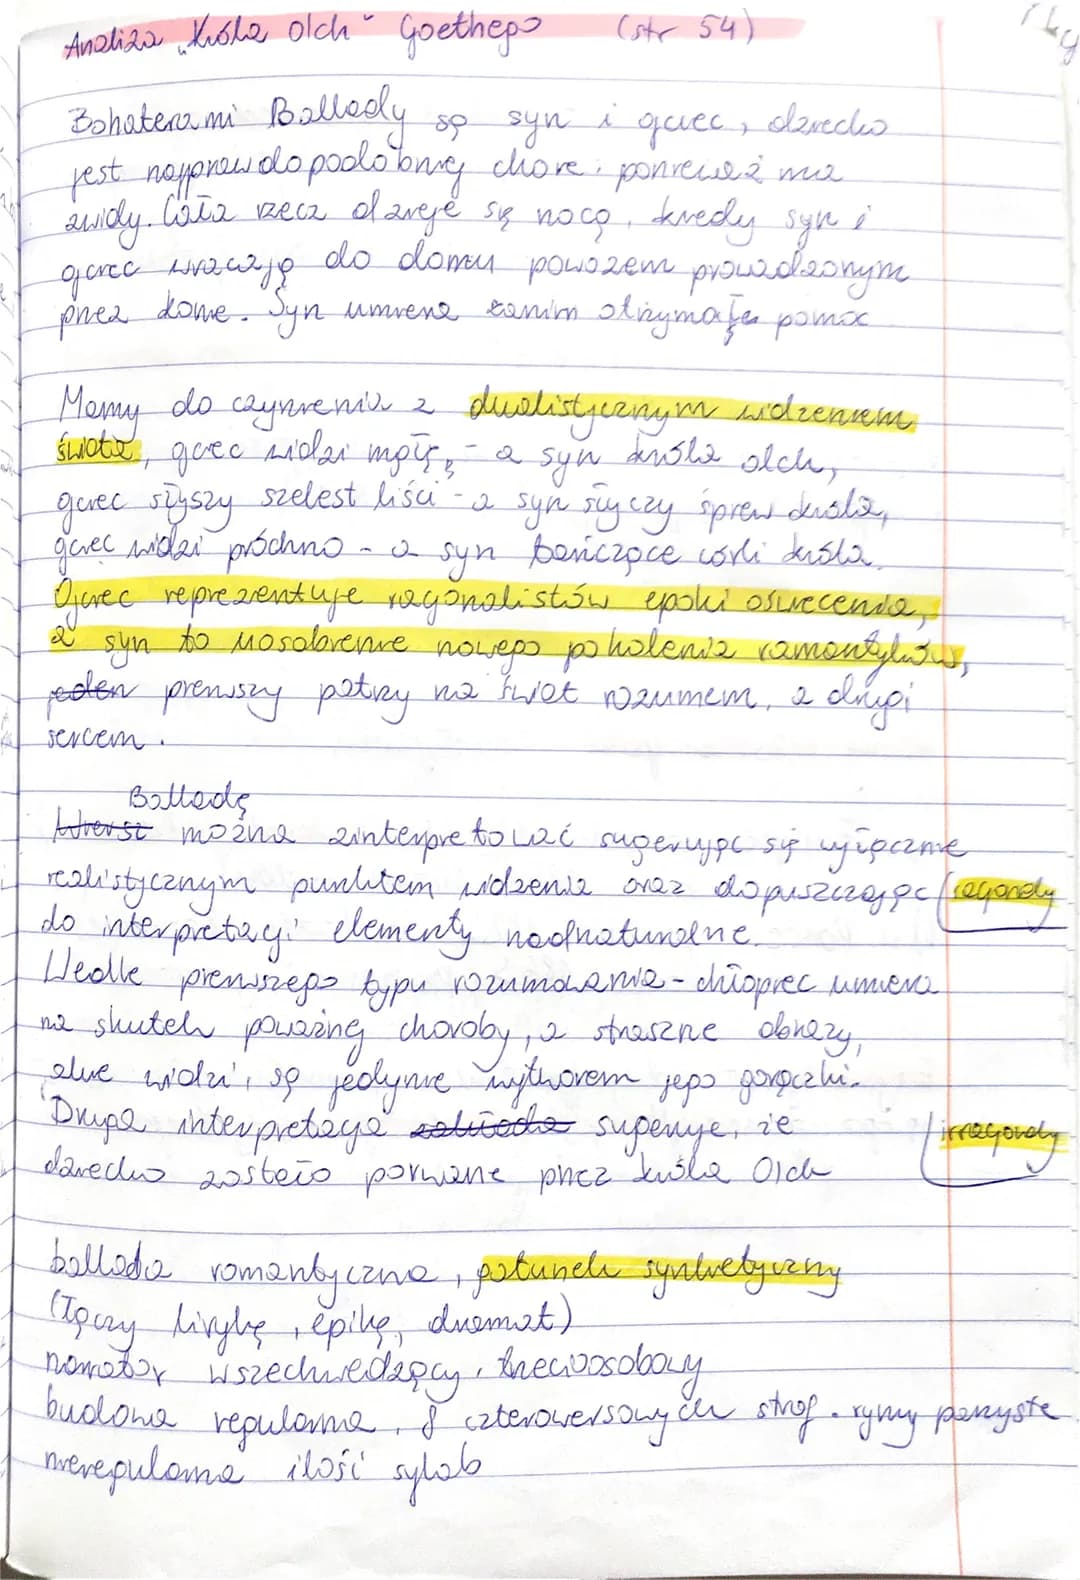 Analiza „Króla Olch" Goethego (str 54)
Bohaterami Ballady są syn i ojciec, dziecko
jest najprawdopodobniej chore, ponieważ ma
zwidy. Cała rzecz dzieje się nocą, kiedy syn i
ojciec wracają do domu powozem prowadzonym
przez konie. Syn umiera zanim otrzymałe pomoc
Mamy do czynienia z dualistycznym widzeniem
świata, ojciec widzi mgłę, - a syn króla olch,
ojciec słyszy szelest liści - a syn słyczy śpiew króla,
ojciec widzi próchno - a syn tańczące córki króla.
Ojciec reprezentuje racjonalistów epoki oświecenia,
a syn to uosobienie nowego pokolenia romantyków,
jeden pierwszy patrzy na świat rozumem, a drugi
sercem.
Balladę
Wiersz można zinterpretować sugerując się wyłącznie
realistycznym punktem widzenia oraz dopuszczając racjonalny
do interpretacji elementy nadnaturalne.
Wedle pierwszego typu rozumowania - chłopiec umiera
na skutek poważnej choroby, a straszne obrazy,
które widzi, są jedynie wytworem jego gorączki.
Druga interpretacja sugeruje, że irracjonalny
dziecko zostało porwane przez króla Olch
ballada romantyczna, gatunek synkretyczny
(łączy lirykę, epikę, dramat)
narrator wszechwiedzący, trzecioosobowy
budowa regularna, 8 czterowersowych strof. rymy parzyste
nieregularna ilość sylab